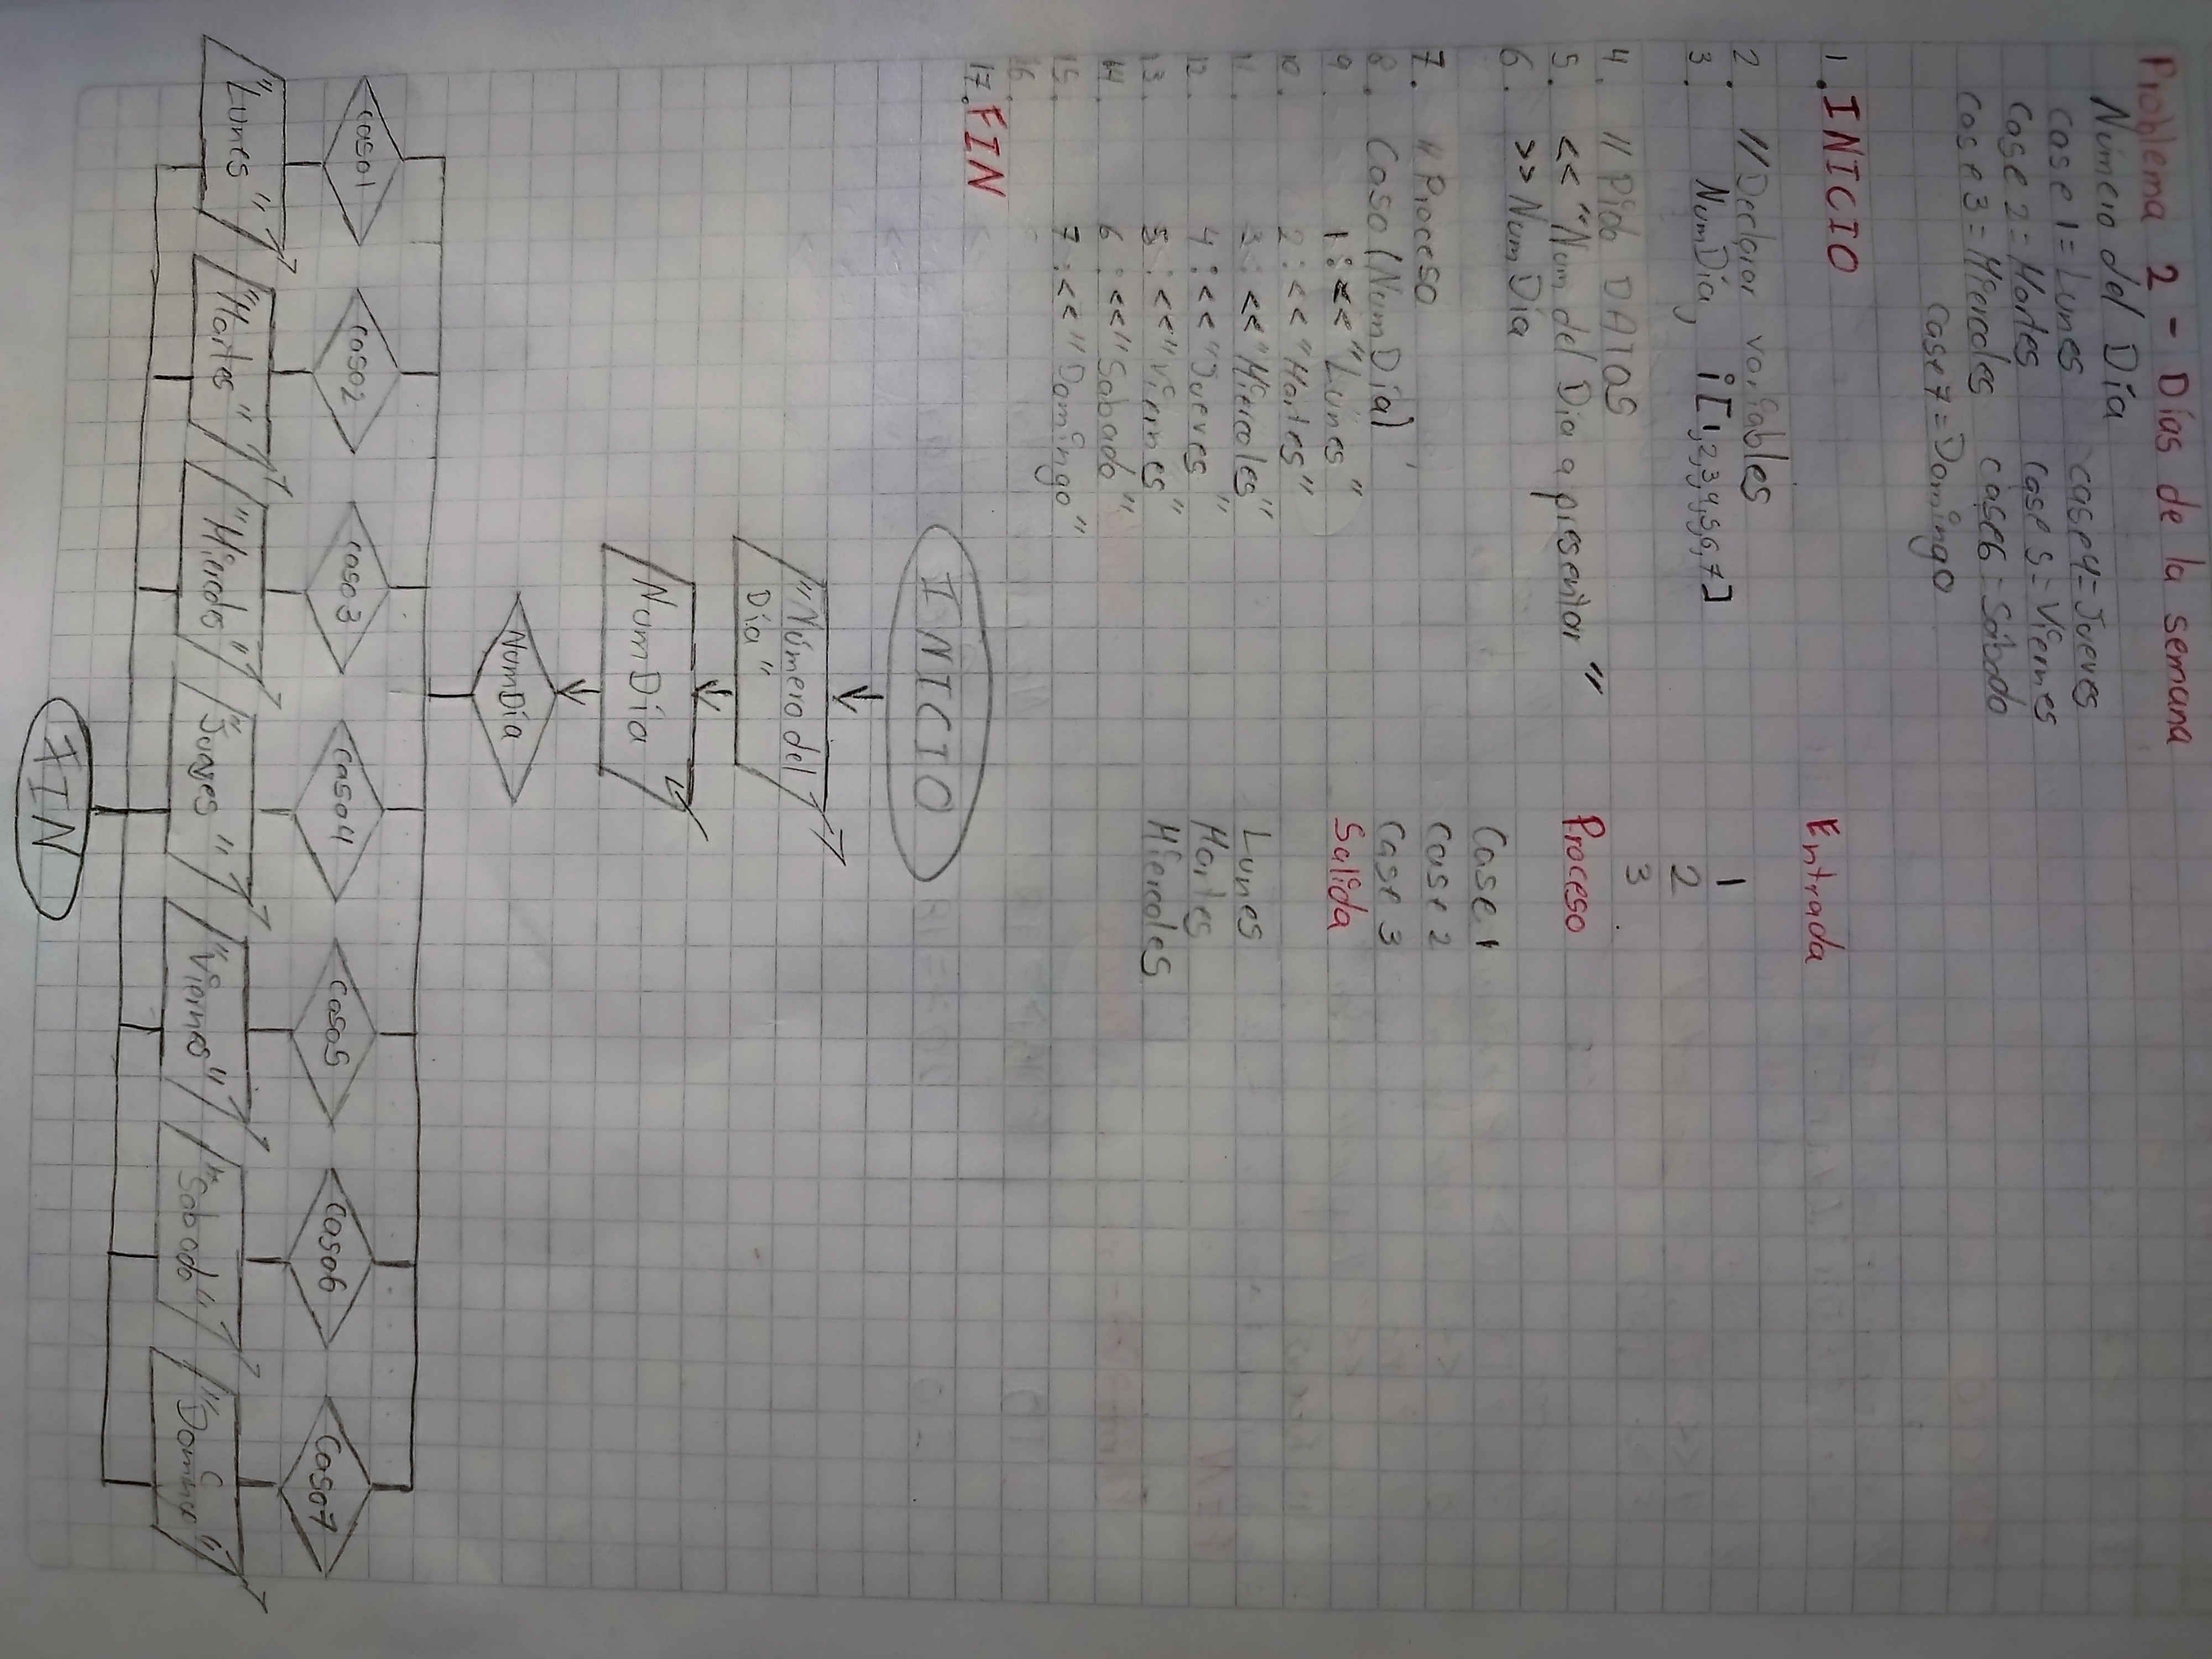 Problema 2 - Días de la semana
Número del Día
case 1 = Lunes case 4 = Jueves
case 2 = Martes case 5 = Viernes
case 3 = Miercoles case 6 = Sábado
case 7 = Domingo
1. INICIO
2. // Declarar variables
3. NumDía, i [1,2,3,4,5,6,7]
4. // Pido DATOS
5. << "Num del Dia a presentar"
6. >> NumDía
7. // Proceso
8. Caso (NumDía)
9. 1 : << "Lunes"
10. 2 : << "Martes"
11. 3 : << "Miercoles"
12. 4 : << "Jueves"
13. 5 : << "Viernes"
14. 6 : << "Sabado"
15. 7 : << "Domingo"
16.
17. FIN
Entrada
1
2
3
Proceso
Case 1
case 2
case 3
Salida
Lunes
Martes
Miercoles
INICIO
"Número del
Día"
NumDía
NumDía
caso1 caso2 caso3 caso4 caso5 caso6 caso7
"Lunes" "Martes" "Miercoles" "Jueves" "Viernes" "Sabado" "Domingo"
FIN